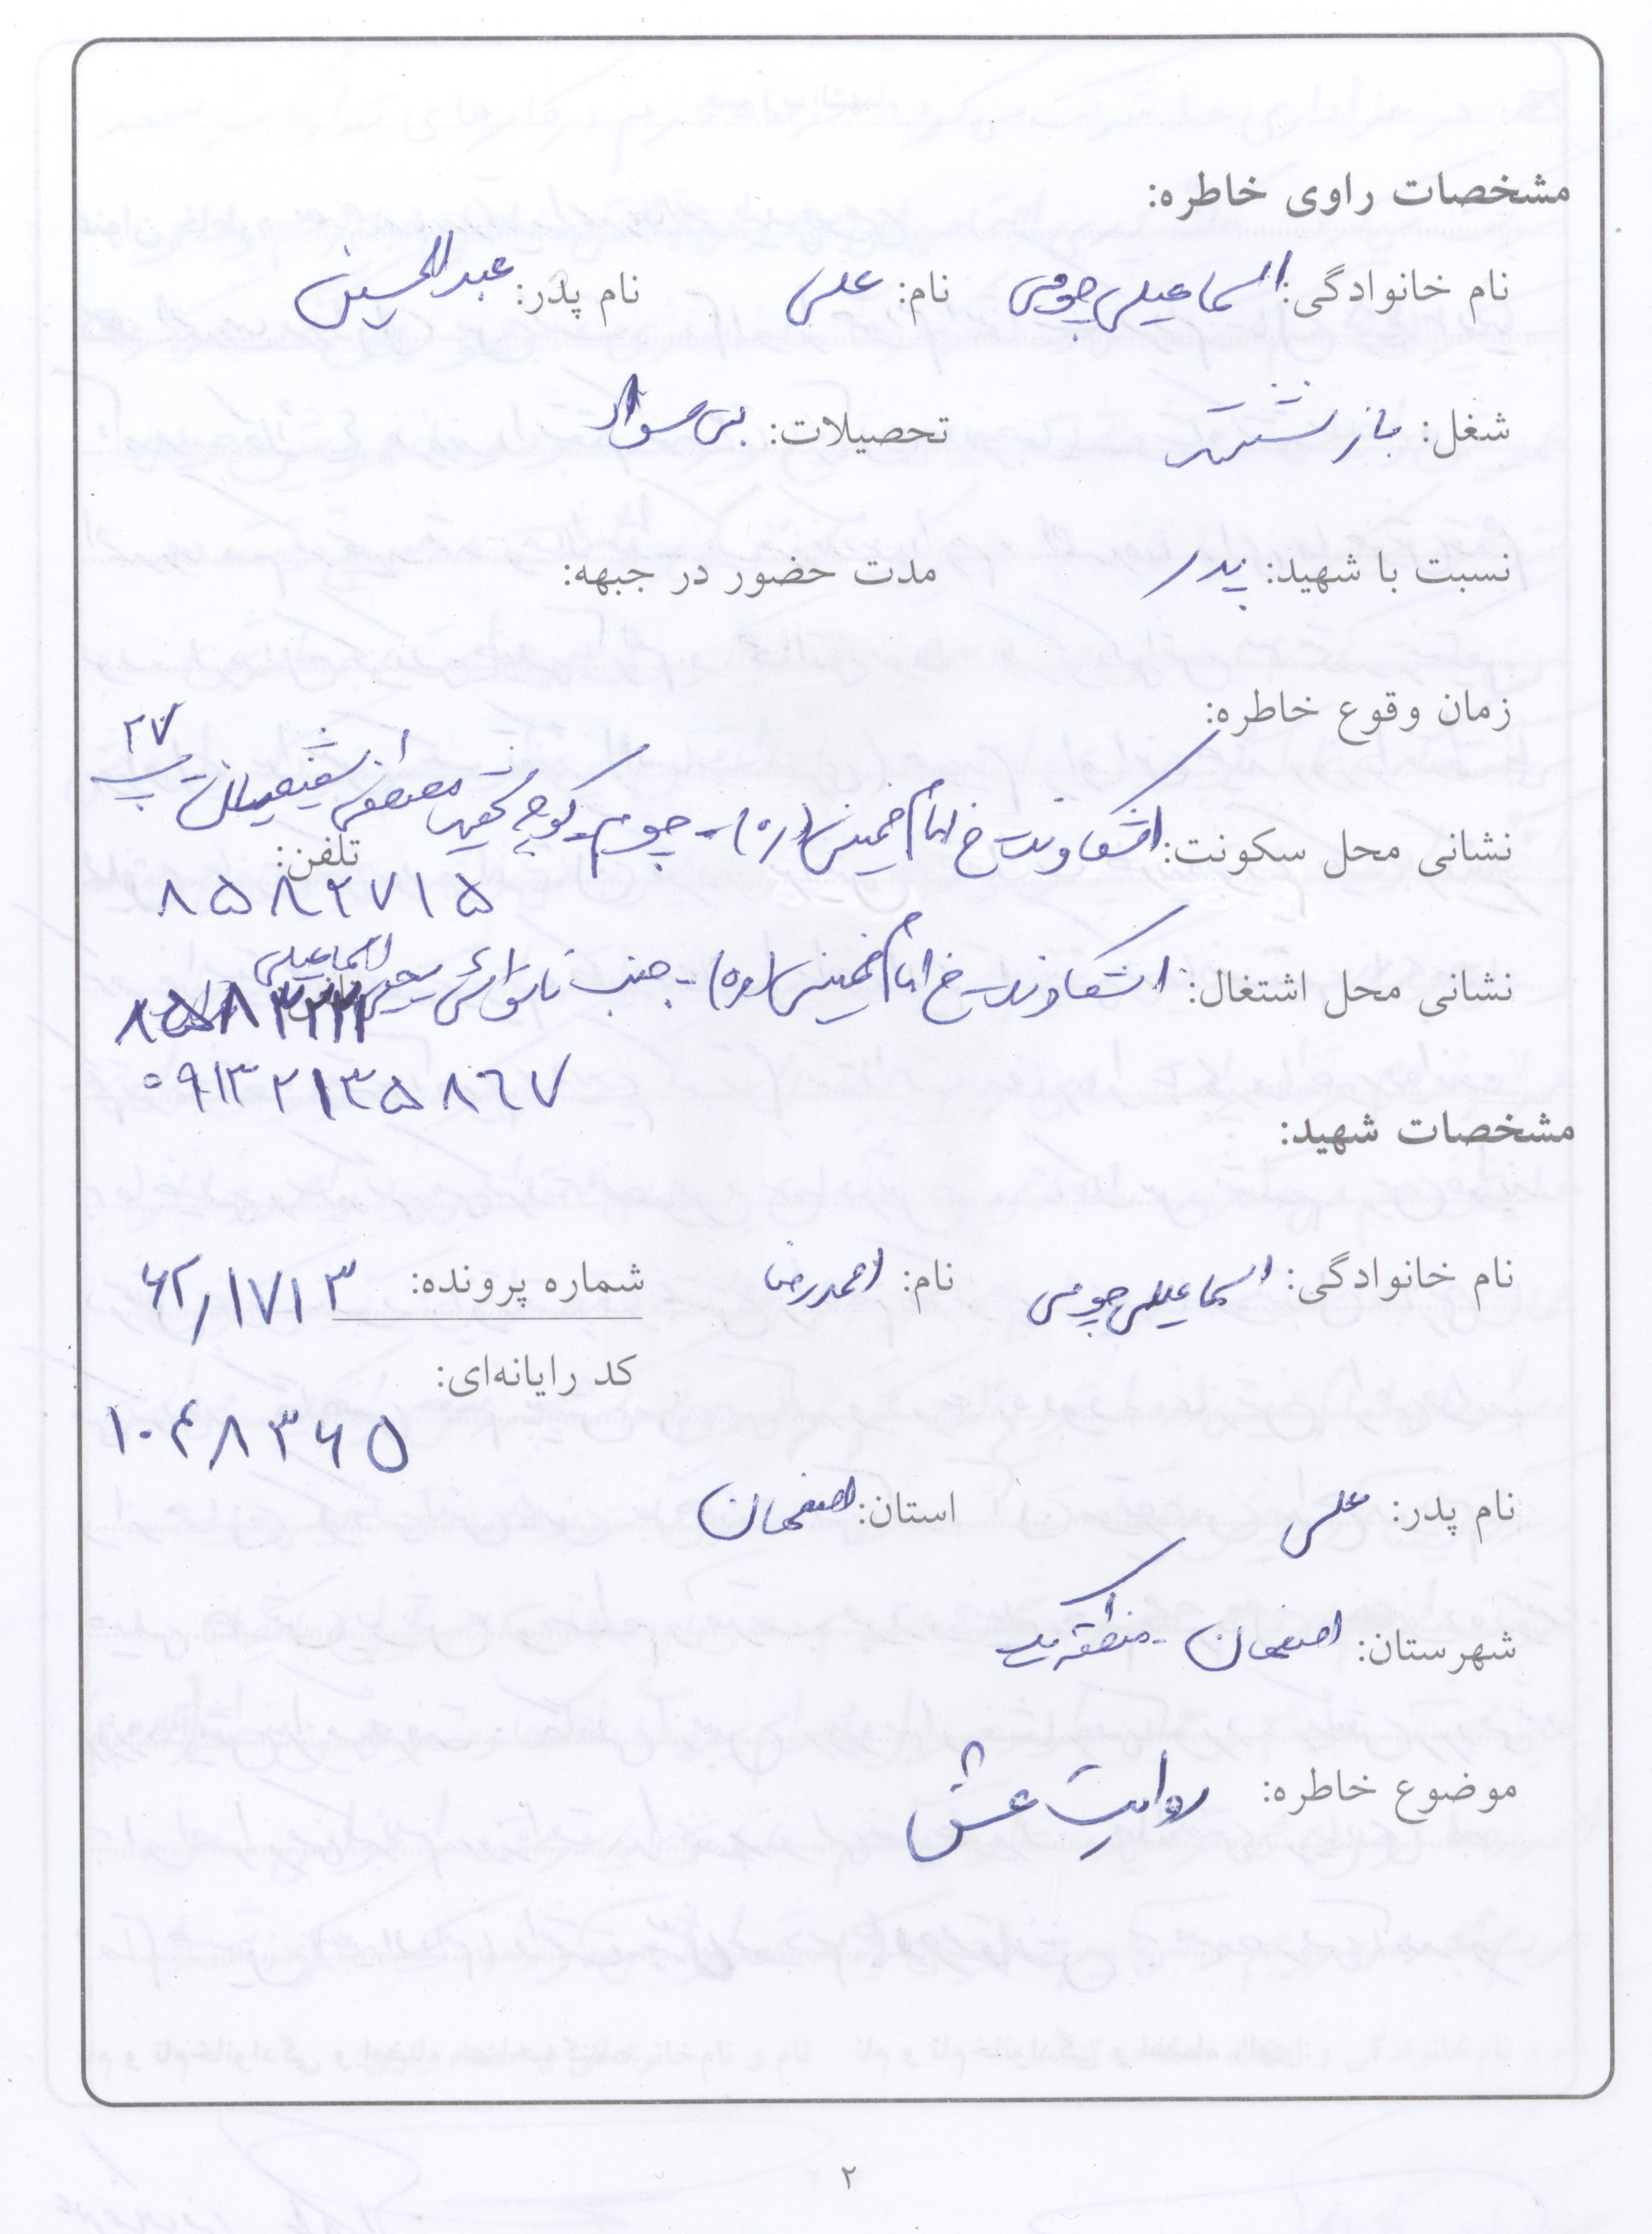 مشخصات راوی خاطره:
نام خانوادگی: اسماعیلی چومی نام: علی نام پدر: عبدالحسین
شغل: بازنشسته تحصیلات: بی سواد
نسبت با شهید: پدر مدت حضور در جبهه:
زمان وقوع خاطره:
نشانی محل سکونت: اشکاوند - خ امام خمینی (ره) - چوم - کوچه شهید مصطفی شفیعیان - پ ۲۷
تلفن: ۸۵۸۲۷۱۵
نشانی محل اشتغال: اشکاوند - خ امام خمینی (ره) - جنب نانوائی اسماعیلی
۰۹۱۳۲۱۳۵۸۶۷
مشخصات شهید:
نام خانوادگی: اسماعیلی چومی نام: احمدرضا شماره پرونده: ۶۲/۱۷۱۳
کد رایانه‌ای:
۱۰۴۸۳۶۵
نام پدر: علی استان: اصفهان
شهرستان: اصفهان - منطقه یک
موضوع خاطره: روایت عشق
۲